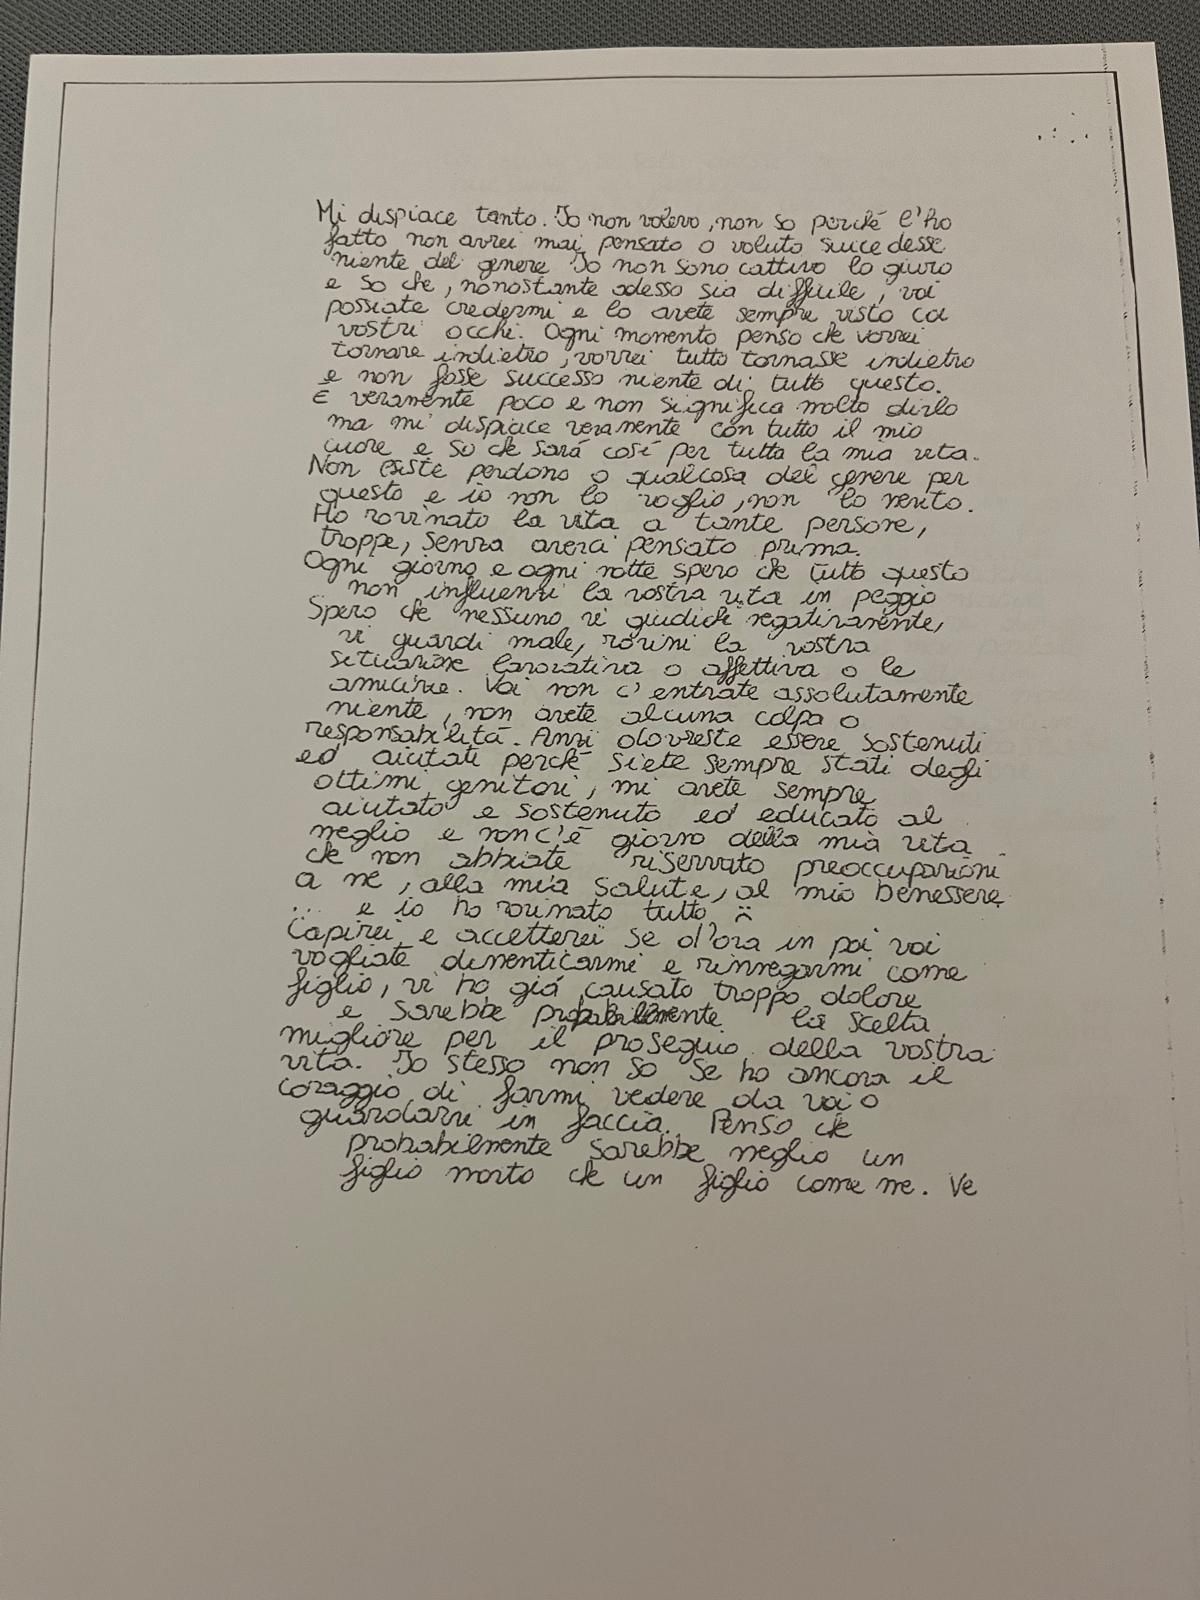 Mi dispiace tanto. Io non volevo, non so perché l'ho
fatto, non avrei mai pensato o voluto succedesse
niente del genere. Io non sono cattivo lo giuro
e so che, nonostante adesso sia difficile, voi
possiate credermi e lo avete sempre visto coi
vostri occhi. Ogni momento penso che vorrei
tornare indietro, vorrei tutto tornasse indietro
e non fosse successo niente di tutto questo.
È veramente poco e non significa molto dirlo
ma mi dispiace veramente con tutto il mio
cuore e so che sará cosí per tutta la mia vita.
Non esiste perdono o qualcosa del genere per
questo e io non lo voglio, non lo merito.
Ho rovinato la vita a tante persone,
troppe, senza averci pensato prima.
Ogni giorno e ogni notte spero che tutto questo
non influenzi la vostra vita in peggio
Spero che nessuno vi giudichi negativamente,
vi guardi male, rovini la vostra
situazione lavorativa o affettiva o le
amicizie. Voi non c'entrate assolutamente
niente, non avete alcuna colpa o
responsabilitá. Anzi dovreste essere sostenuti
ed aiutati perché siete sempre stati degli
ottimi genitori, mi avete sempre
aiutato e sostenuto ed educato al
meglio e non c'é giorno della mia vita
che non abbiate riservato preoccupazioni
a me, alla mia salute, al mio benessere
... e io ho rovinato tutto :(
Capirei e accetterei se d'ora in poi voi
vogliate dimenticarmi e rinnegarmi come
figlio, vi ho giá causato troppo dolore
e sarebbe probabilmente la scelta
migliore per il proseguio della vostra
vita. Io stesso non so se ho ancora il
coraggio di farmi vedere da voi o
guardarvi in faccia. Penso che
probabilmente sarebbe meglio un
figlio morto che un figlio come me. Ve